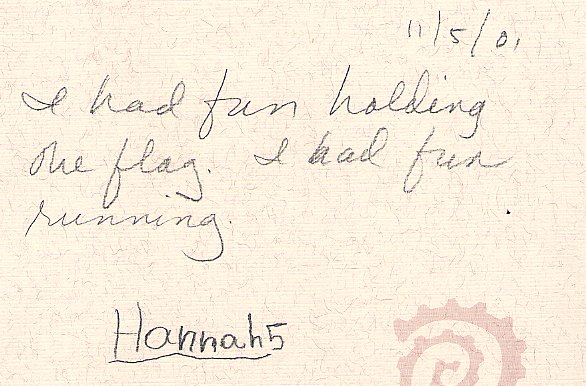 11/5/01
I had fun holding
the flag. I had fun
running.
Hannah 5